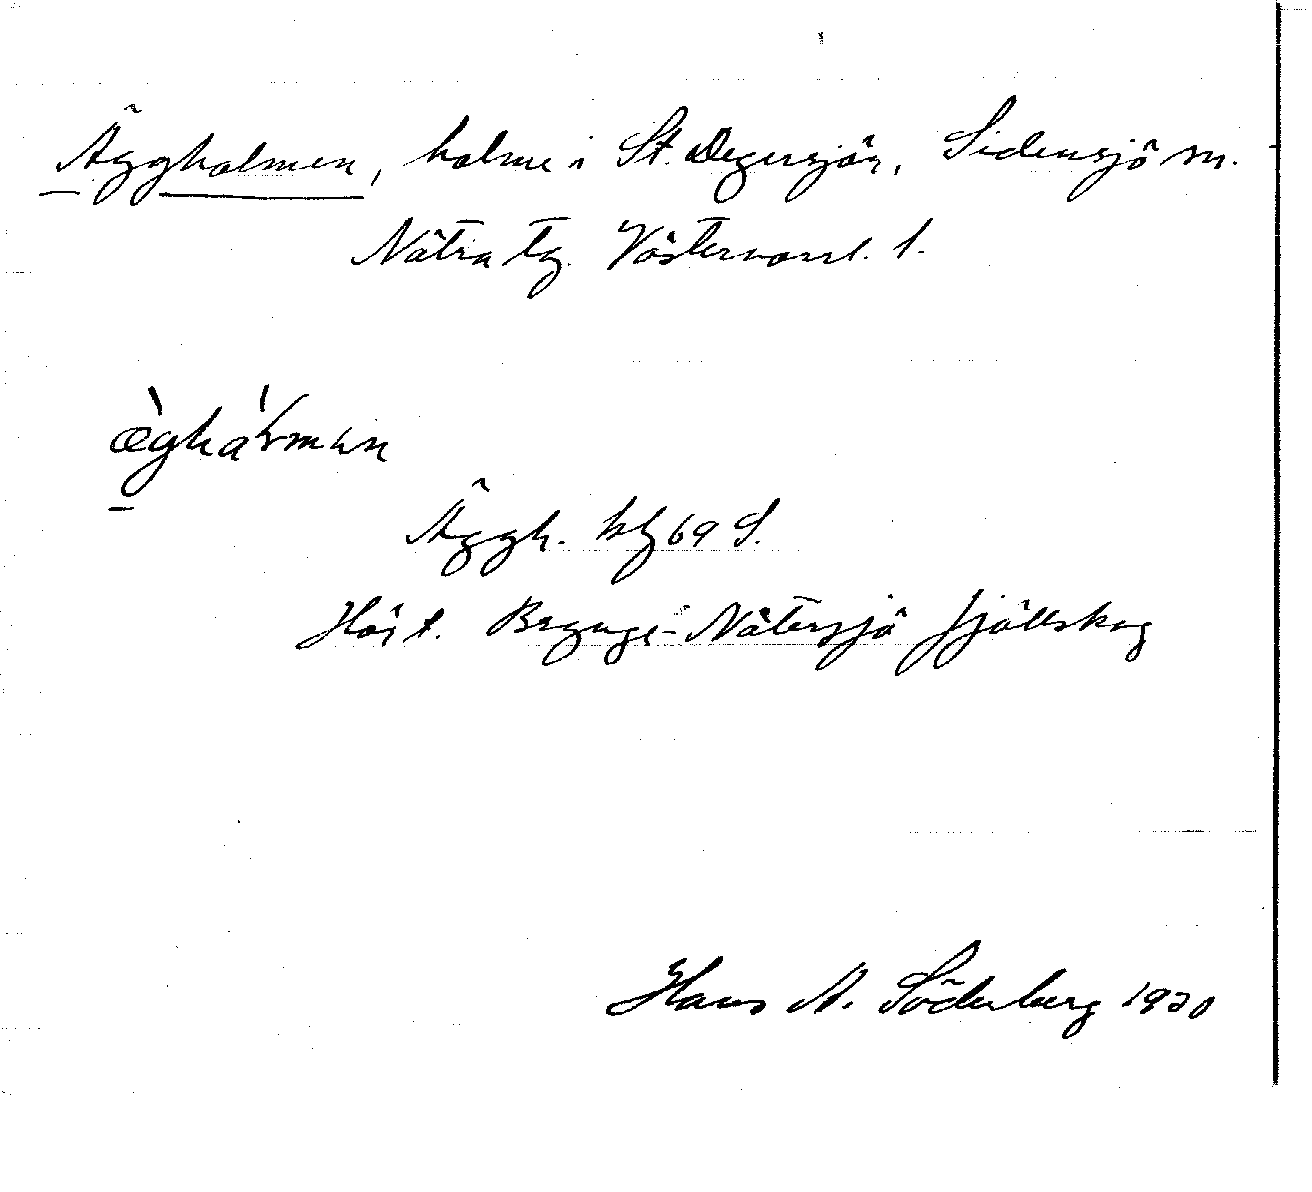 Äggholmen, holme i St. Degersjön, Sidensjö sn.
Nätra tg. Västernorrl. l.
Äggh. blg 69 S.
Hör t. Bygge- Nätersjö fjällskog
Hans A. Söderberg 1920